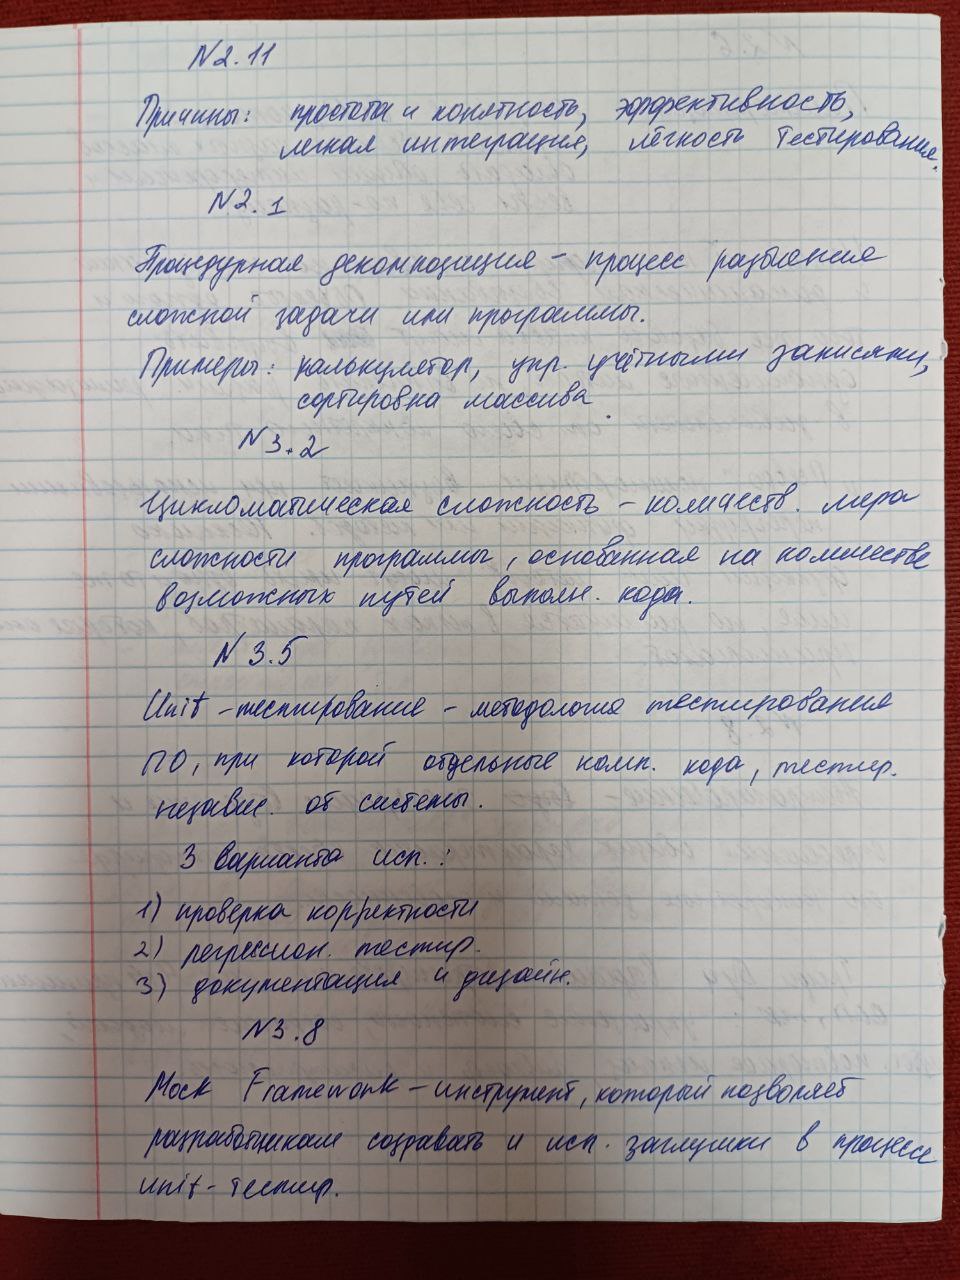 N2.11
Причины: простота и понятность, эффективность,
легкая интеграция, лёгкость тестирования.
N2.1
Процедурная декомпозиция – процесс разбиения
сложной задачи или программы.
Примеры: калькулятор, упр. учётными записями,
сортировка массива.
N3.2
Цикломатическая сложность – количеств. мера
сложности программы, основанная на количестве
возможных путей выполн. кода.
N3.5
Unit-тестирование – методология тестирования
ПО, при которой отдельные комп. кода, тестир.
независ. от системы.
3 варианта исп.:
1) проверка корректности
2) регрессион. тестир.
3) документация и дизайн.
N3.8
Mock Framework – инструмент, который позволяет
разработчикам создавать и исп. заглушки в процессе
unit-тестир.